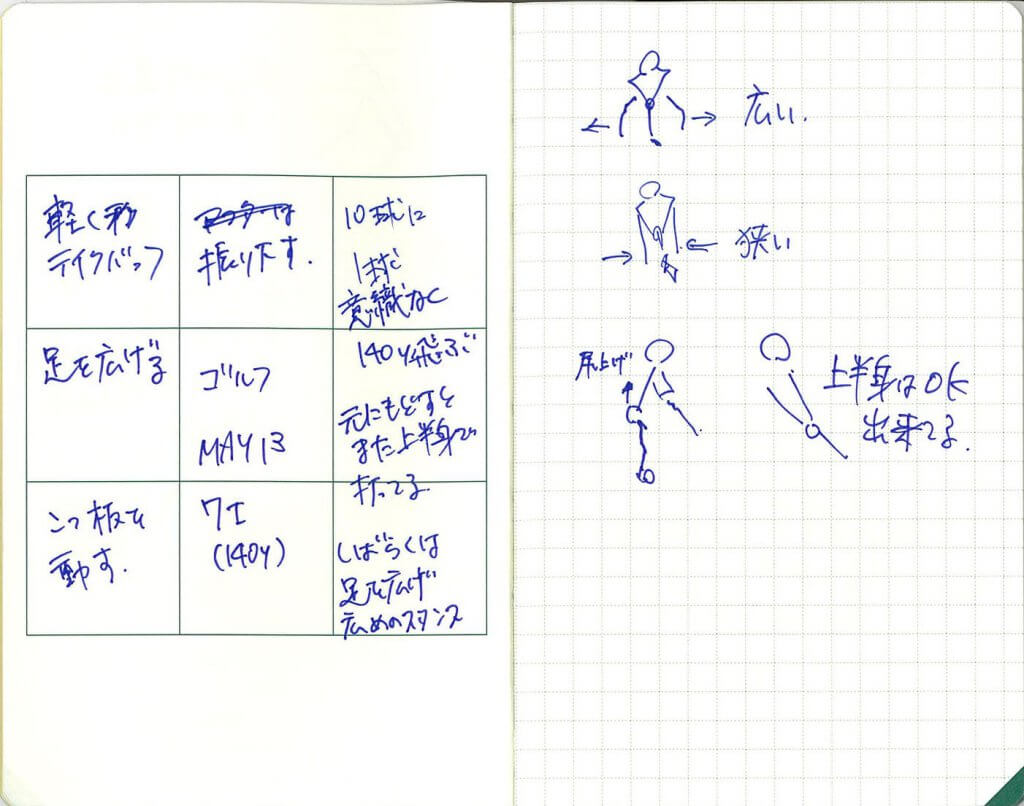 軽く
テイクバック
振り下す.
10球に
1球だ
意識なく
足を広げる
ゴルフ
MAY 13
140y飛ぶ
元にもどすと
また上半身で
打ってる
こつ板を
動す.
7I
(140y)
しばらくは
足を広げ
広めのスタンス
広い.
狭い
尻上げ
上半身はOK
出来てる.